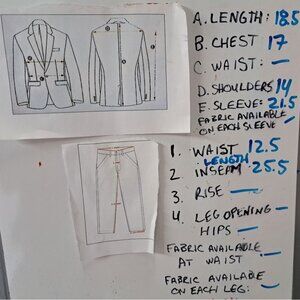 A. LENGTH: 18.5
B. CHEST 17
C. WAIST: —
D. SHOULDERS 14
E. SLEEVE: 21.5
FABRIC AVAILABLE
ON EACH SLEEVE —
1. WAIST 12.5
LENGTH
2. INSEAM 25.5
3. RISE —
4. LEG OPENING —
HIPS —
FABRIC AVAILABLE
AT WAIST —
FABRIC AVAILABLE
ON EACH LEG: —